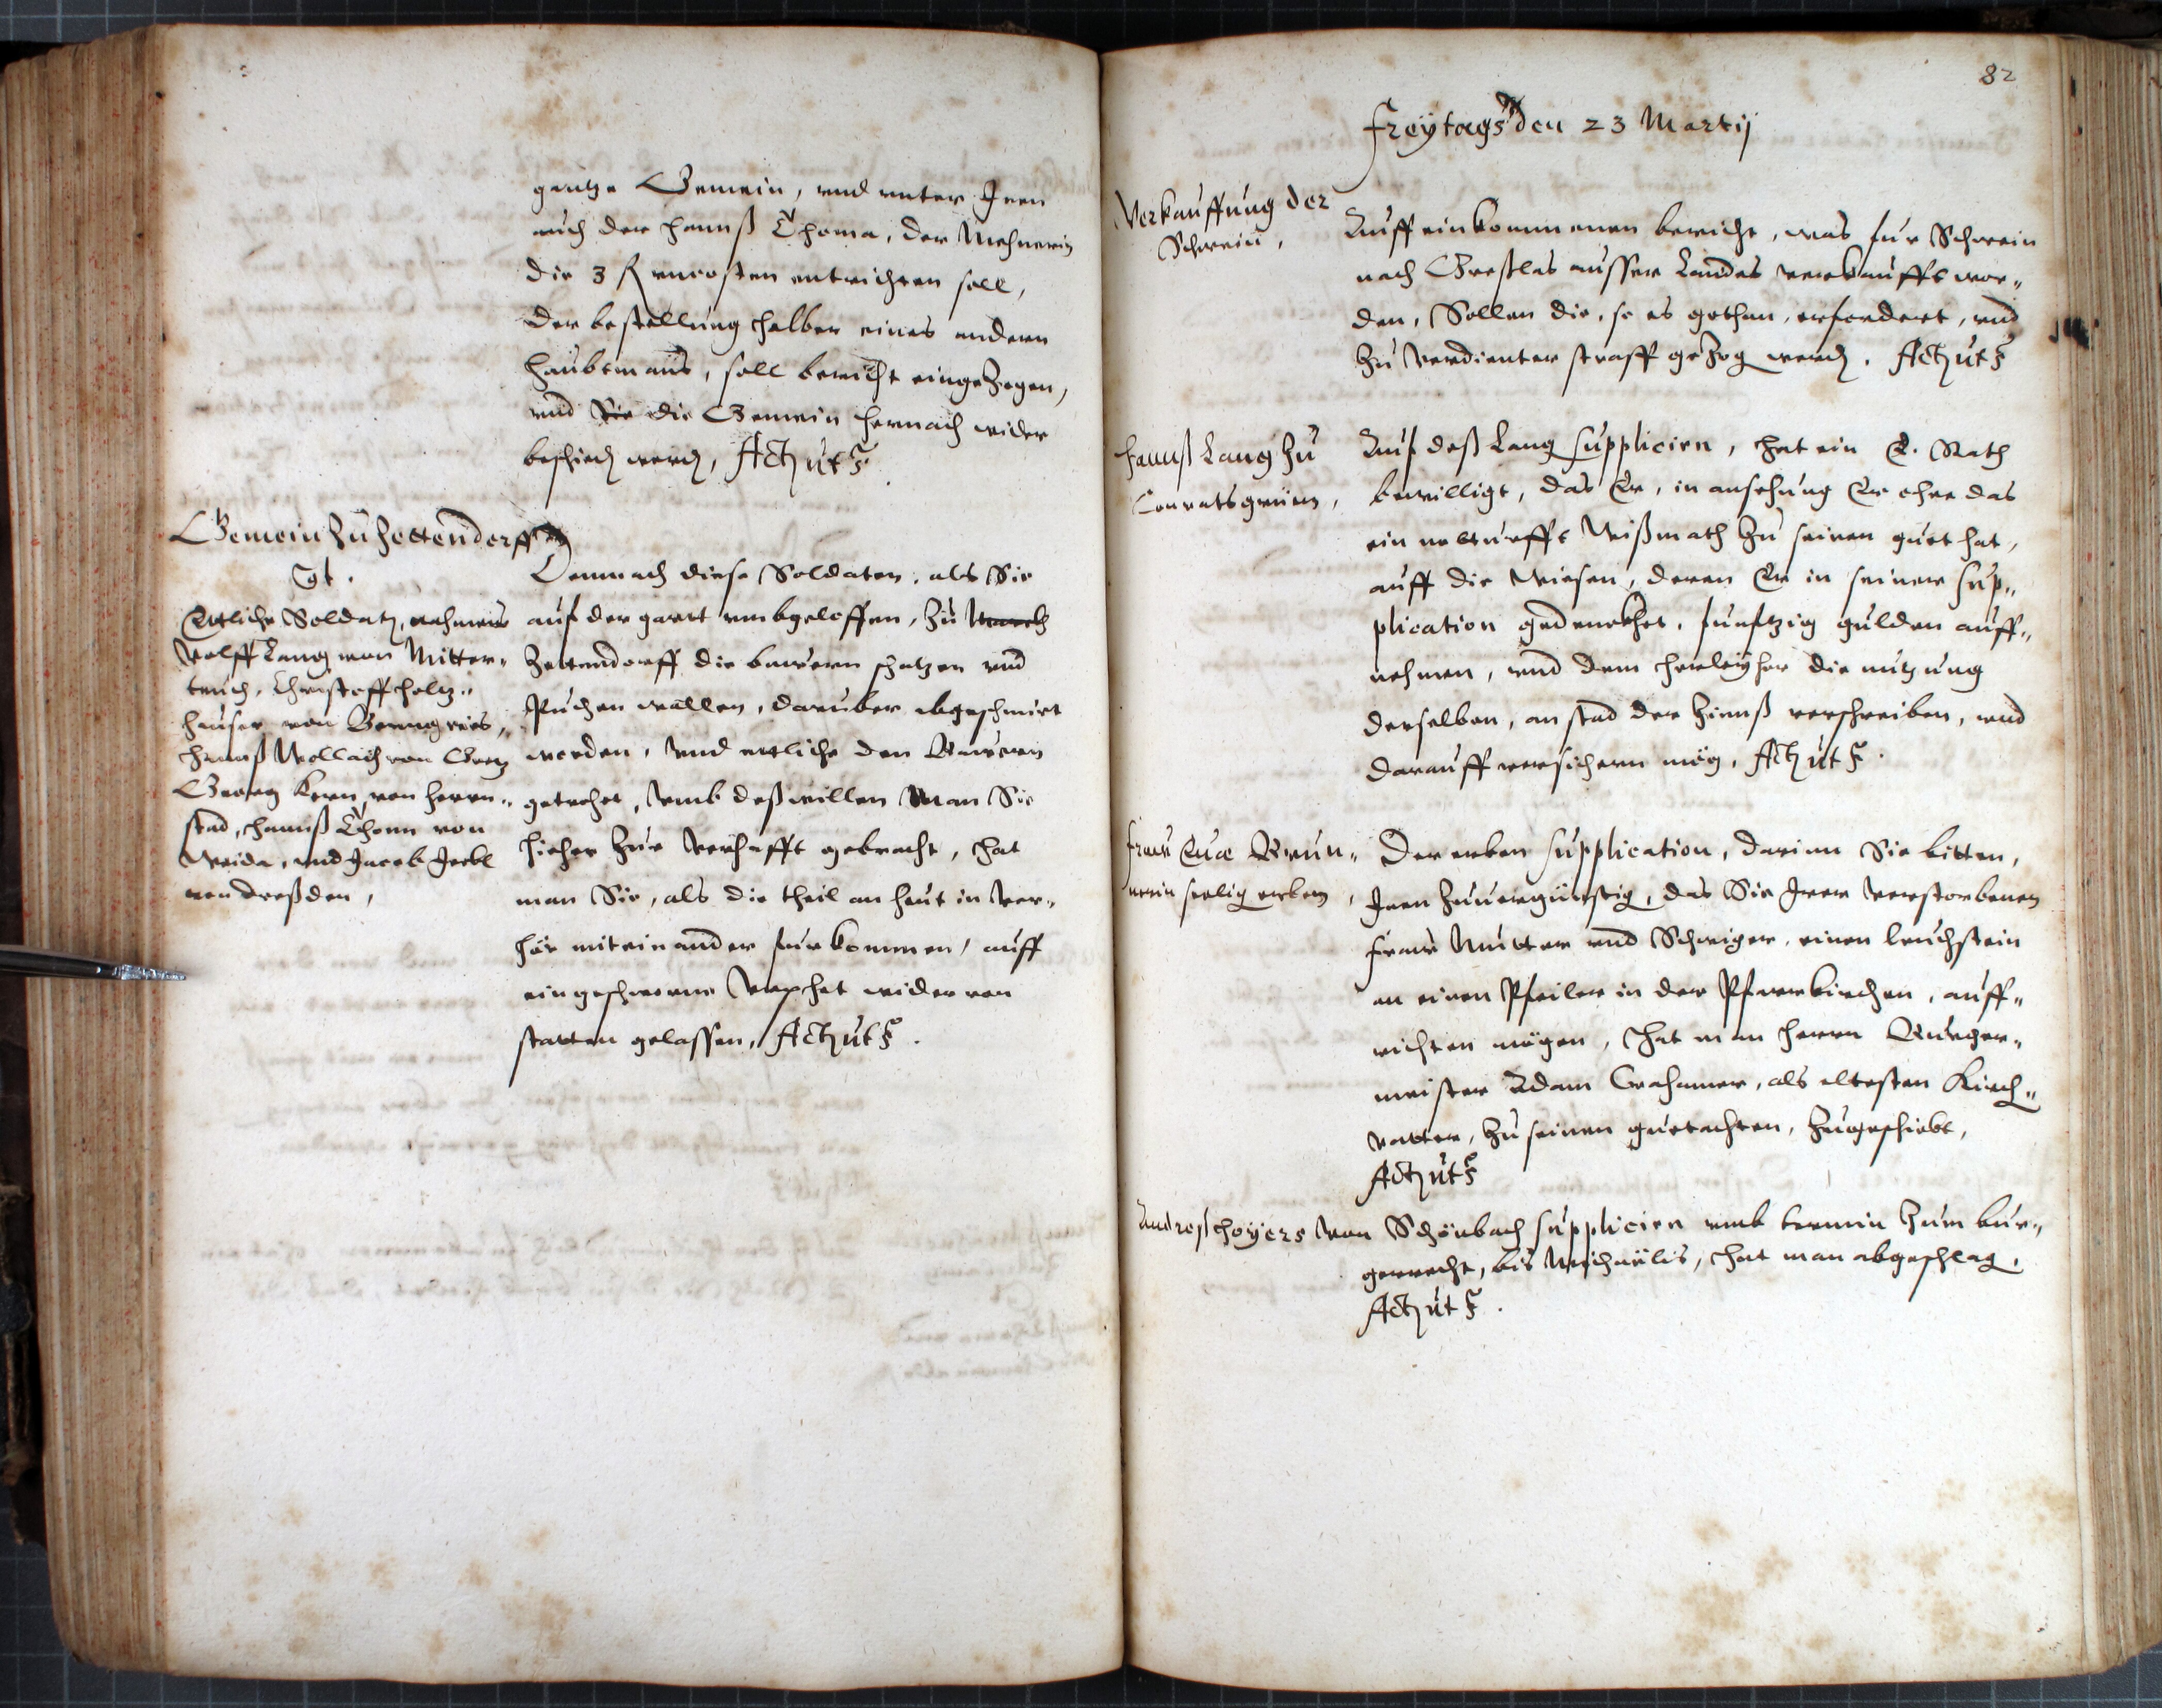 gantze Gemein, vnd vnter Jnen
auch der Hannß Thoma, der Meßnerin
die 3 f vncosten entrichten soll,
Der bestellung halber eines andern
Haubtmans, soll bericht eingezogen,
vnd Sie die Gemein hernach wider
beschied werd, Act ut s
Gemein zu Zettendorff
Ct.
Ettliche Soldat, nahmens
Wolff Lang von Mitter-
teich, Christoff Holtz-
hauser von
Hannß Wollach von
Georg Kern von Herrn-
stad, Hannß Thom von
Weida, vnd Jacob
von Dreßden,
Demnach diese Soldaten, als Sie
auf der gartt vmbgeloffen, zu
Zettendorff die bawern schatzen vnd
Puchen wollen, darüber abgeschmirt
worden, vnd ettliche den Bawern
getrohet, vmb deßwillen Man Sie
hieher zur verhafft gebracht, hat
man Sie, als die theil an heut in ver-
hör miteinander furkommen, auff
ein geschworne Vrphet wider von
statten gelassen, Act ut s.
82
Freÿtags den 23 Martij
Verkauffung der
Schwein,
Auff einkommenen bericht, was fur Schwein
nach Greßlas ausser Landes verkaufft wor-
den, Sollen die, so es gethan, erfordert, vnd
zu verdienter straff gezog werd. Act ut s
Hannß Lang zu
Conratsgrün,
Auf deß Lang supplicirn, hat ein E. Rath
bewilligt, das Er, in ansehung Er ohne das
ein notturfft Wißmath zu seinen guet hat,
auff die Wiesen, deren Er in seiner sup-
plication gedencket, funfftzig gulden auff-
nehmen, vnd dem herleyher die nutzung
derselben, an stad der Zinnß verschreiben, vnd
darauff versichern mög, Act ut s.
Fraw Eva Brun-
nerin seelig erben,
Der erben supplication, darinn Sie bitten,
Jnen zuuergünstig, das Sie Jrer verstorbenen
Fraw Mutter vnd Schwiger, einen leuchstein
an einen Pfeiler in der Pfarrkirchen, auff-
richten mögen, Hat man Herrn Burger-
meister Adam Crahamer, als eltesten Kirch-
vatter, zu seinen guetachten, zugeschickt,
Act ut s
Andreß Hoÿers von Schönbach supplicirn vmb termin zum bur-
gerrecht, bis Michaëlis, hat man abgeschlag,
Act ut s.